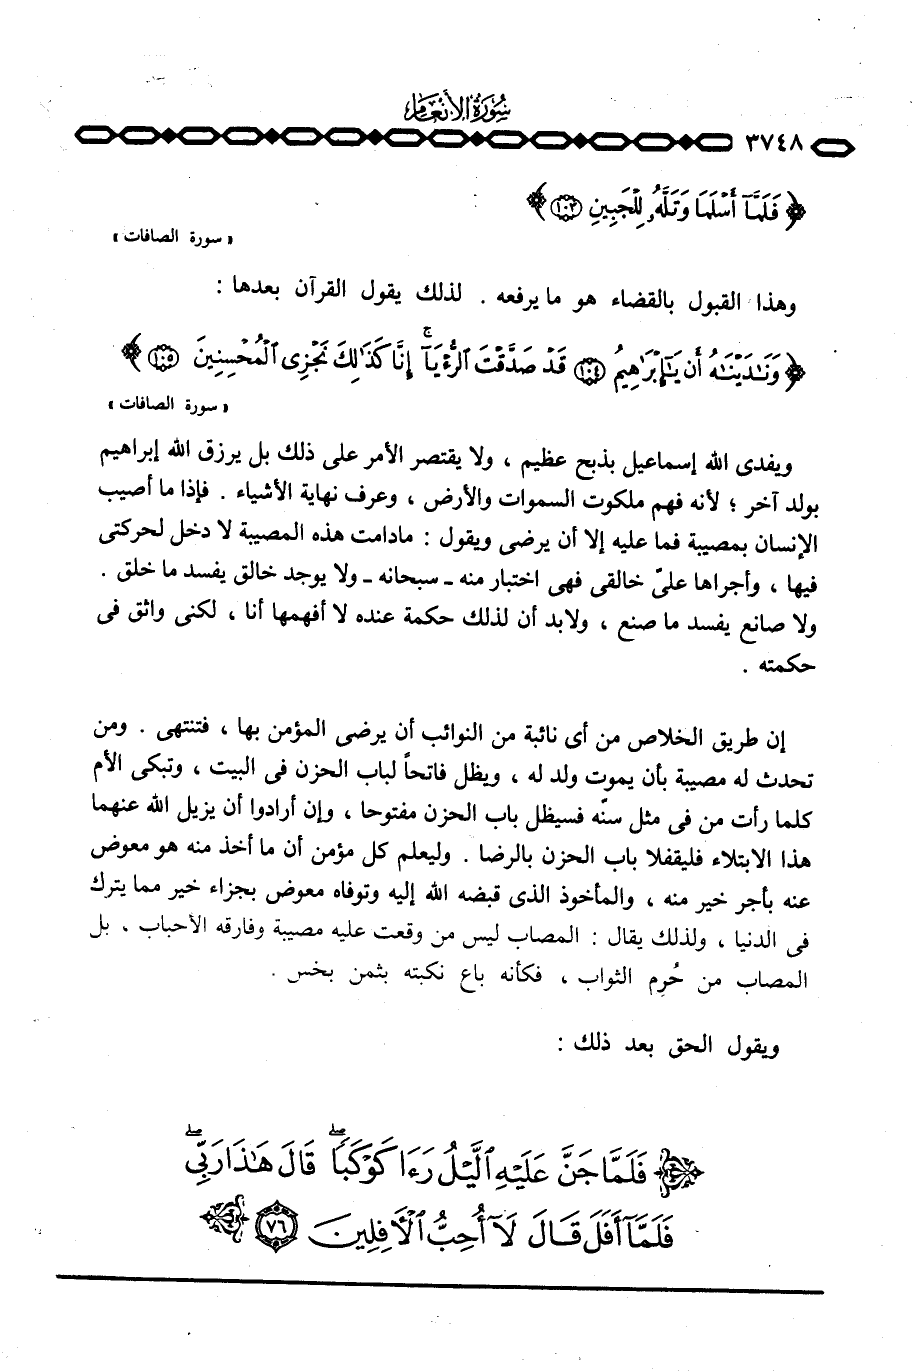 سُورَةُ الأَنْعَام
٣٧٤٨
﴿ فَلَمَّآ أَسْلَمَا وَتَلَّهُۥ لِلْجَبِينِ ١٠٣ ﴾
« سورة الصافات »
وهذا القبول بالقضاء هو ما يرفعه . لذلك يقول القرآن بعدها :
﴿ وَنَٰدَيْنَٰهُ أَن يَٰٓإِبْرَٰهِيمُ ١٠٤ قَدْ صَدَّقْتَ ٱلرُّءْيَآ ۚ إِنَّا كَذَٰلِكَ نَجْزِى ٱلْمُحْسِنِينَ ١٠٥ ﴾
« سورة الصافات »
ويفدى الله إسماعيل بذبح عظيم ، ولا يقتصر الأمر على ذلك بل يرزق الله إبراهيم
بولد آخر ؛ لأنه فهم ملكوت السموات والأرض ، وعرف نهاية الأشياء . فإذا ما أصيب
الإنسان بمصيبة فما عليه إلا أن يرضى ويقول : مادامت هذه المصيبة لا دخل لحركتى
فيها ، وأجراها علىّ خالقى فهى اختبار منه ـ سبحانه ـ ولا يوجد خالق يفسد ما خلق .
ولا صانع يفسد ما صنع ، ولابد أن لذلك حكمة عنده لا أفهمها أنا ، لكنى واثق فى
حكمته .
إن طريق الخلاص من أى نائبة من النوائب أن يرضى المؤمن بها ، فتنتهى . ومن
تحدث له مصيبة بأن يموت ولد له ، ويظل فاتحاً لباب الحزن فى البيت ، وتبكى الأم
كلما رأت من فى مثل سنّه فسيظل باب الحزن مفتوحا ، وإن أرادوا أن يزيل الله عنهما
هذا الابتلاء فليقفلا باب الحزن بالرضا . وليعلم كل مؤمن أن ما أخذ منه هو معوض
عنه بأجر خير منه ، والمأخوذ الذى قبضه الله إليه وتوفاه معوض بجزاء خير مما يترك
فى الدنيا ، ولذلك يقال : المصاب ليس من وقعت عليه مصيبة وفارقه الأحباب ، بل
المصاب من حُرِم الثواب ، فكأنه باع نكبته بثمن بخس .
ويقول الحق بعد ذلك :
فَلَمَّا جَنَّ عَلَيْهِ ٱلَّيْلُ رَءَا كَوْكَبًا ۖ قَالَ هَٰذَا رَبِّى ۖ
فَلَمَّآ أَفَلَ قَالَ لَآ أُحِبُّ ٱلْأَفِلِينَ ٧٦